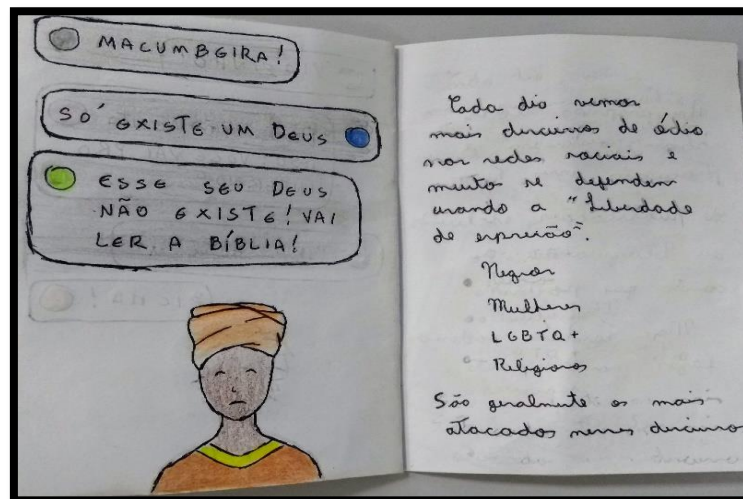 MACUMBEIRA!
SÓ EXISTE UM DEUS
ESSE SEU DEUS
NÃO EXISTE! VAI
LER A BÍBLIA!
Cada dia vemos
mais discursos de ódio
nas redes sociais e
muito se defendem
usando a "Liberdade
de expressão".
Negros
Mulheres
LGBTQ+
Religiosos
São geralmente os mais
atacados nesses discursos